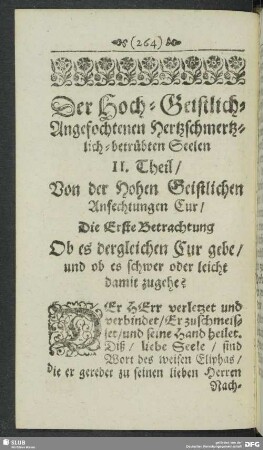 (264)
Der Hoch-Geistlich-
Angefochtenen Hertzschmertz-
lich-betrübten Seelen
II. Theil/
Von der Hohen Geistlichen
Anfechtungen Cur/
Die Erste Betrachtung
Ob es dergleichen Cur gebe/
und ob es schwer oder leicht
damit zugehe?
DEr HErr verletzet und
verbindet/Er zuschmeis-
set/und seine Hand heilet.
Diß/ liebe Seele/ sind
Wort des weisen Eliphas/
die er geredet zu seinen lieben Herren
Nach-
SLUB
DFG